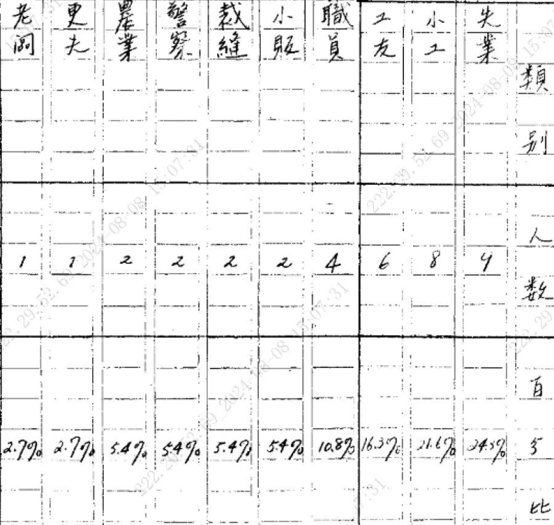 類别 人数 百分比
失業 9 24.3%
小工 8 21.6%
工友 6 16.3%
職員 4 10.8%
小販 2 5.4%
裁縫 2 5.4%
警察 2 5.4%
農業 2 5.4%
更夫 1 2.7%
老闆 1 2.7%
222.29.52.69 2024-08-08 15:07:31